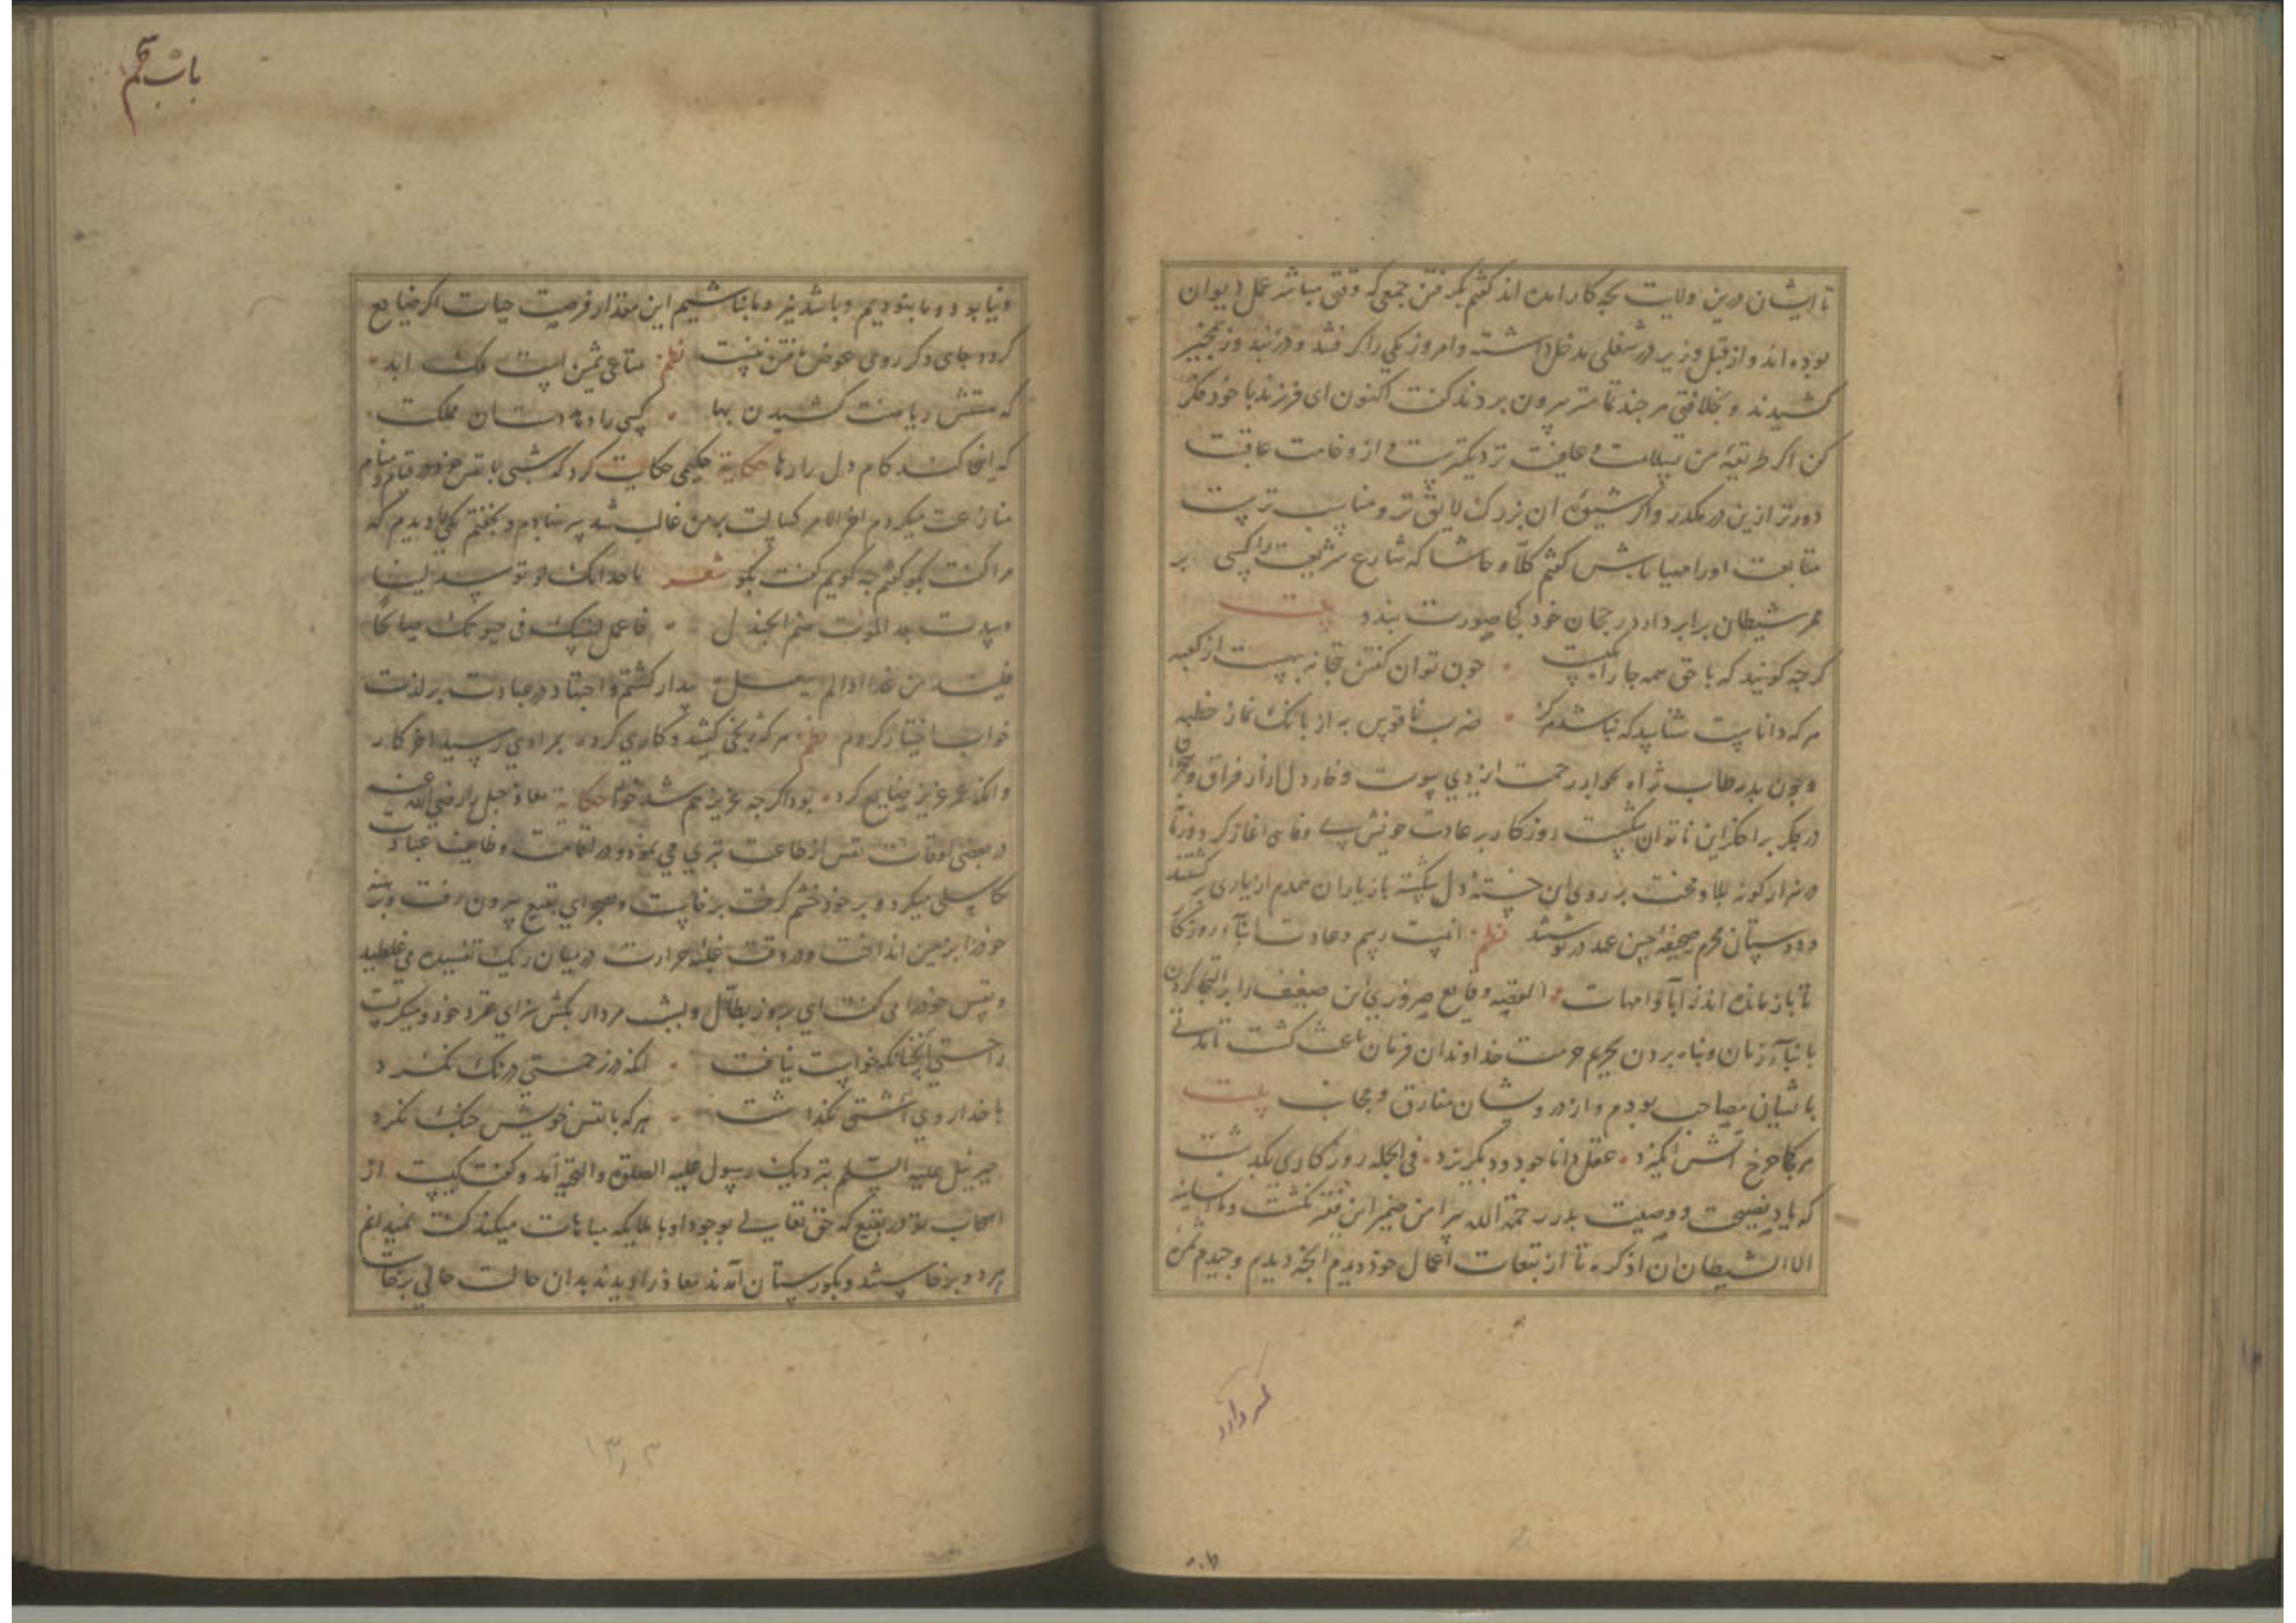 تا ایشان درین ولایت بچه کار امده اند کفتم بکرفتن جمعی که وقتی مباشر عمل دیوان
بوده اند و از قبل وزیر در شغلی مدخل داشته و امروز یکی را کرفتند و در بند و زنجیر
کشیدند و بخلافتی هر چند تمامتر بیرون بردند کفت اکنون ای فرزند با خود فکر
کن اکر طریقهٔ من بسلامت و عافیت نزدیکترست و از وخامت عاقبت
دورتر ازین در مکذر و اکر شیوهٔ ان بزرک لایق تر و مناسب ترست
متابعت او را مهیا باش کفتم کلّا و حاشا که شارع شریعت را کسی بر
ممر شیطان برابر دارد در جهان خود کجا صورت بندد بیت
کرچه کویند که با حق همه جا راهست چون توان کفتن بتخانه بهست از کعبه
هر که داناست شناسد که نباشد هرکز ضرب ناقوس به از بانک نماز خطبه
و چون پدر طاب ثراه بجوار رحمت ایزدی پیوست و خار دل ازار فراق و هجران
در جکر براحکز این ناتوان شکست روزکار بر عادت خویش بی وفایی اغاز کرد و زتا
در هزار کونه بلا و محنت بر روی این خستهٔ دل شکسته باز یاران همدم از یاری برکشتند
و دوستان محرم صحیفهٔ حسن عهد در نوشتند نظم اینست رسم و عادت ابنآء روزکار
تا باز مانده اند ز ابا و امهات القصه وقایع ضروری این ضعیف را بر التجا کردن
بابنآء زمان و پناه بردن بحریم حرمت خداوندان فرمان باعث کشت تا مدتی
باشیان مصاحب بودم و از درویشان مفارق و مجانب بیت
هر کجا چرخ اتش انکیزد عقل دانا چو دود بکریزد فی الجمله روزکاری بکذشت
که یاد نصیحت و وصیت پدر رحمة الله پیرامن ضمیر این فقیر نکشت و ما انسانیه
الا الشیطان ان اذکره تا از تبعات اعمال خود دیدم انچه دیدم و چیدم ثمرهٔ
کردار
باب پنجم
دنیا بود و ما نبودیم و باشد نیز و ما نباشیم این مقدار فرصت حیات اکر ضایع
کردد جای دکر روی عوض یافتن نیست نظم متاعی ثمین است ملک ابد
که هستش ریاضت کشیدن بها کسی راه داستان مملکت
که ایجا کشد کام دل را رها حکایة حکیمی حکایت کرد که شبی با نفس خود در قیام و منام
منازعت میکردم اخر الامر کسالت بر من غالب شد سر بنهادم و بخفتم یکی را دیدم که
مرا کفت بکو کفتم چه کویم کفت بکو شعر یا خدانک لو توسدت لینا
وسدت بعد الموت صم الجندل فاعمل لنفسک فی حیوتک صالحًا
فلتندمن غدا اذا لم تفعل بیدار کشتم و اجتهاد در عبادت بر لذت
خواب اختیار کردم نظم هر که رنجی کشید و کاری کرد بمرادی رسید اخر کار
وانکه عمر عزیز ضایع کرد بود اکرچه عزیز هم شد خوار حکایة معاذ جبل را رضی الله عنه
در بعضی اوقات نفس از طاعت تبری می نمود و در اقامت وظایف عبادت
تکاسلی میکرد و بر خود خشم کرفت برخاست و بصحرای بقیع بیرون رفت و برهنه
خود را بر زمین انداخت و در وقت غلبهٔ حرارت در میان ریک تفسیده می غلطید
و نفس خود را می کفت ای بروز بطّال و بشب مردار بکش سزای تمرد خود و میکریست
راحتی انچنانکه خواست نیافت انکه در زحمتی درنک نکرد
با خدا روی آشتی نکذاشت هر که با نفس خویش جنک نکرد
جبرئیل علیه السلم بنزدیک رسول علیه الصلوة و التحیة آمد و کفت کیست از
اصحاب تو در بقیع که حق تعالی بوجود او با ملایکه مباهات میکند کفت نمیدانم
هر دو برخاستند و بکورستان آمدند معاذ را دیدند بدان حالت حالی برخاست
۱۳۰۳